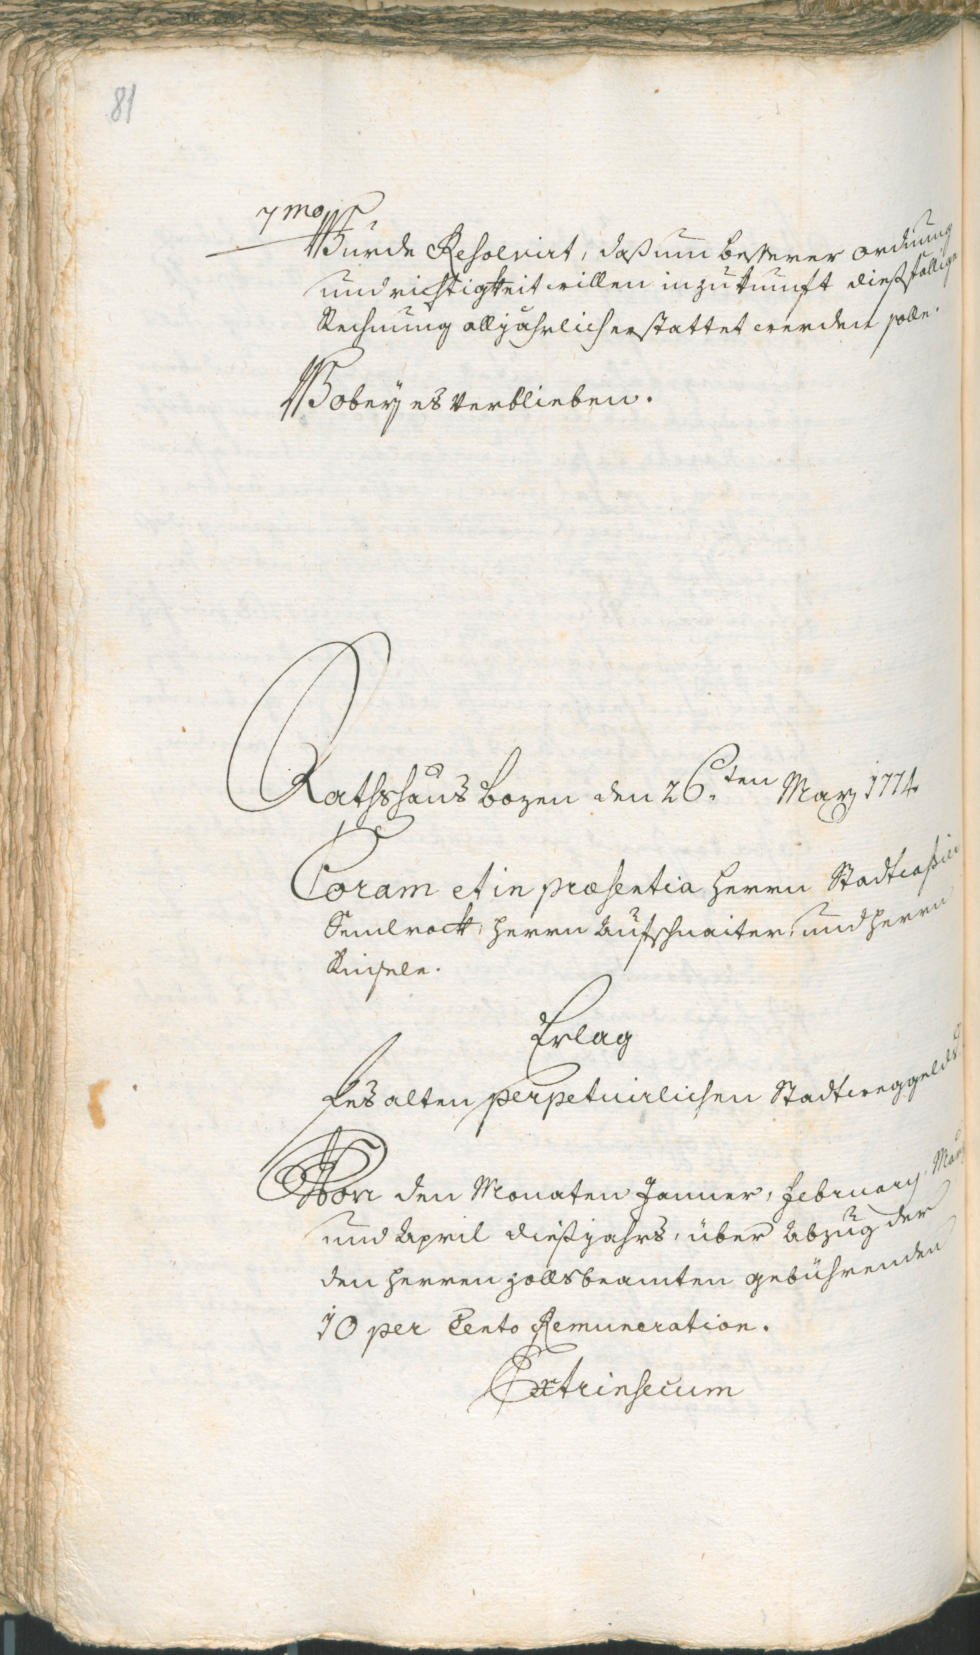 81
7mo
Wurde Resolvirt, daß um besserer ordnung
und richtigkeit willen in zukunft dießfällige
Rechnung alljährlich erstattet werden solle.
Wobey es verblieben.
Rathshaus Bozen den 26.ten May 1774
Coram et in præsentia Herrn Stadtcassier
Herrn Aufschnaiter, und Herrn
Erlag
des alten perpetuirlichen Stadtweggelds
Von den Monaten Jenner, February, Marti
und April dießjahrs, über Abzug der
den Herren Zollsbeamten gebührenden
10 per Cento Remuneration.
Extrinsecum